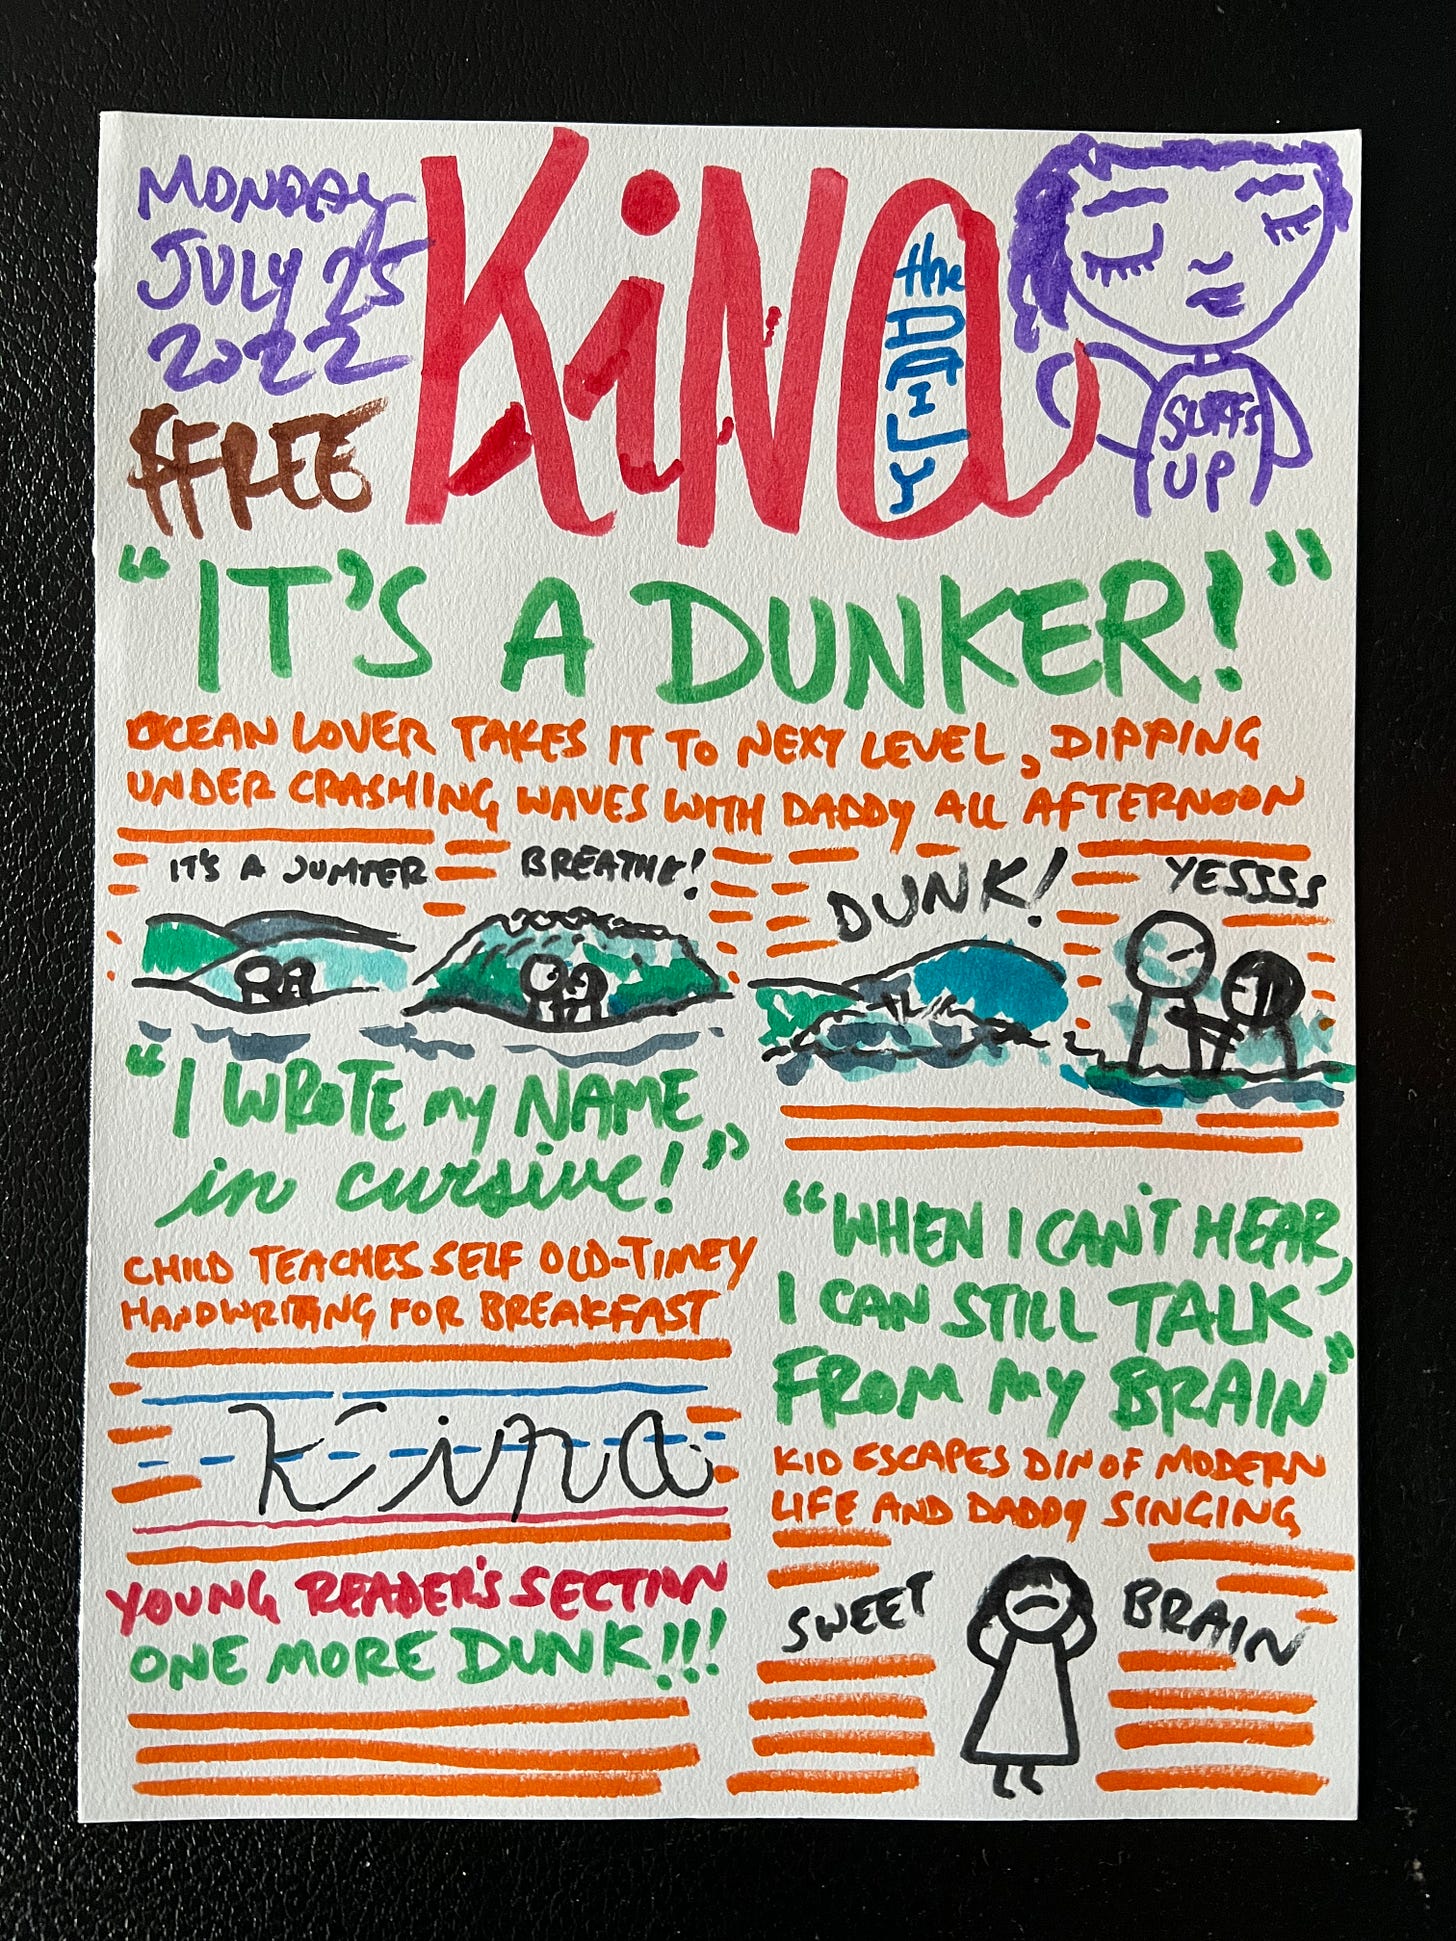 MONDAY
JULY 25
2022
FREE
KiNa
the DAILY
SURF'S
UP
"IT'S A DUNKER!"
OCEAN LOVER TAKES IT TO NEXT LEVEL, DIPPING
UNDER CRASHING WAVES WITH DADDY ALL AFTERNOON
IT'S A JUMPER
BREATHE!
DUNK!
YESSSS
"I WROTE my NAME
in cursive!"
CHILD TEACHES SELF OLD-TIMEY
HANDWRITING FOR BREAKFAST
Kina
YOUNG READER'S SECTION
ONE MORE DUNK!!!
"WHEN I CAN'T HEAR,
I CAN STILL TALK
FROM MY BRAIN"
KID ESCAPES DIN OF MODERN
LIFE AND DADDY SINGING
SWEET BRAIN